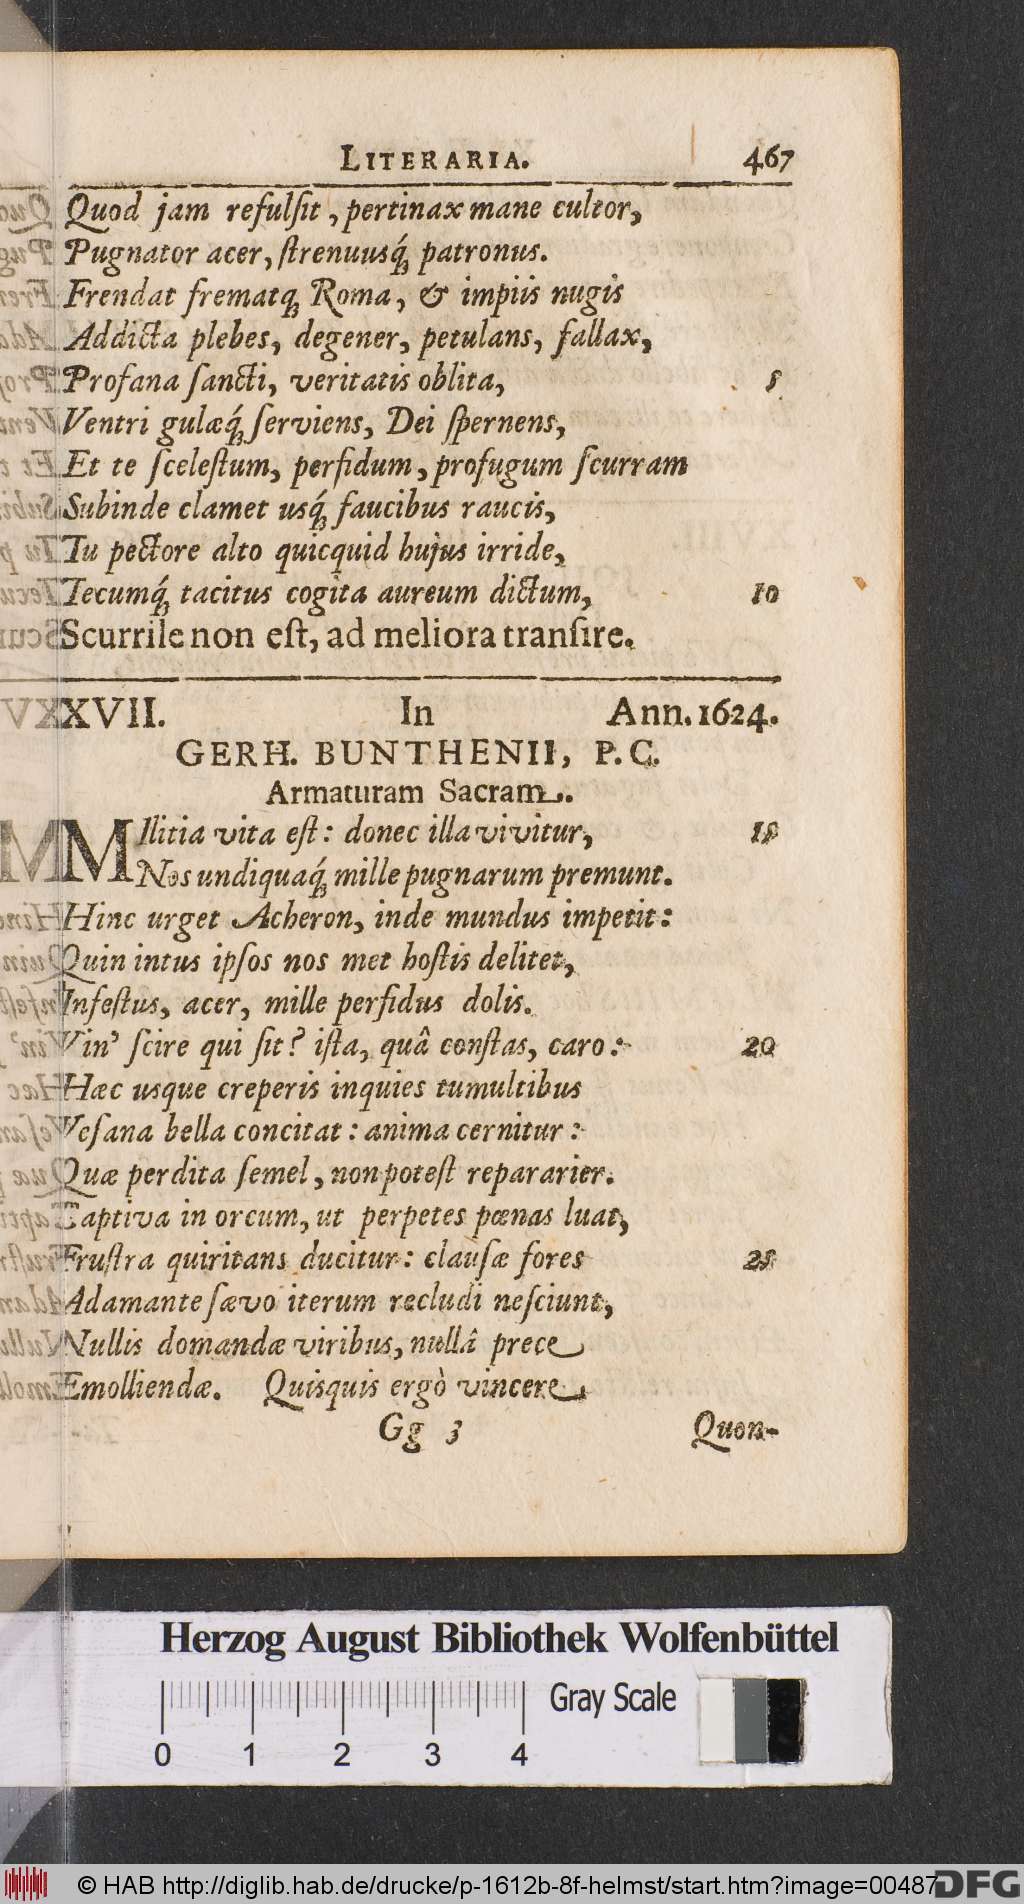 LITERARIA. 467
Quod jam refulſit, pertinax mane cultor,
Pugnator acer, ſtrenuusq́ꝫ patronus.
Frendat frematqꝫ Roma, & impiis nugis
Addicta plebes, degener, petulans, fallax,
Profana ſancti, veritatis oblita, 5
Ventri gulæq́ꝫ ſerviens, Dei ſpernens,
Et te ſceleſtum, perfidum, profugum ſcurram
Subinde clamet usq́ꝫ faucibus raucis,
Tu pectore alto quicquid hujus irride,
Tecumq́ꝫ tacitus cogita aureum dictum, 10
Scurrile non eſt, ad meliora tranſire.
XVII. In Ann. 1624.
GERH. BUNTHENII, P. C.
Armaturam Sacram.
MIlitia vita eſt: donec illa vivitur, 15
Nos undiquaq́ꝫ mille pugnarum premunt.
Hinc urget Acheron, inde mundus impetit:
Quin intus ipſos nos met hoſtis delitet,
Infeſtus, acer, mille perfidus dolis.
Vin' ſcire qui ſit? iſta, quâ conſtas, caro: 20
Hæc usque creperis inquies tumultibus
Veſana bella concitat: anima cernitur:
Quæ perdita ſemel, non poteſt repararier.
Captiva in orcum, ut perpetes pœnas luat,
Fruſtra quiritans ducitur: clauſæ fores 25
Adamante ſævo iterum recludi neſciunt,
Nullis domandæ viribus, nullâ prece
Emolliendæ. Quisquis ergò vincere
Gg 3 Quon-
Herzog August Bibliothek Wolfenbüttel
Gray Scale
0 1 2 3 4
© HAB http://diglib.hab.de/drucke/p-1612b-8f-helmst/start.htm?image=00487
DFG